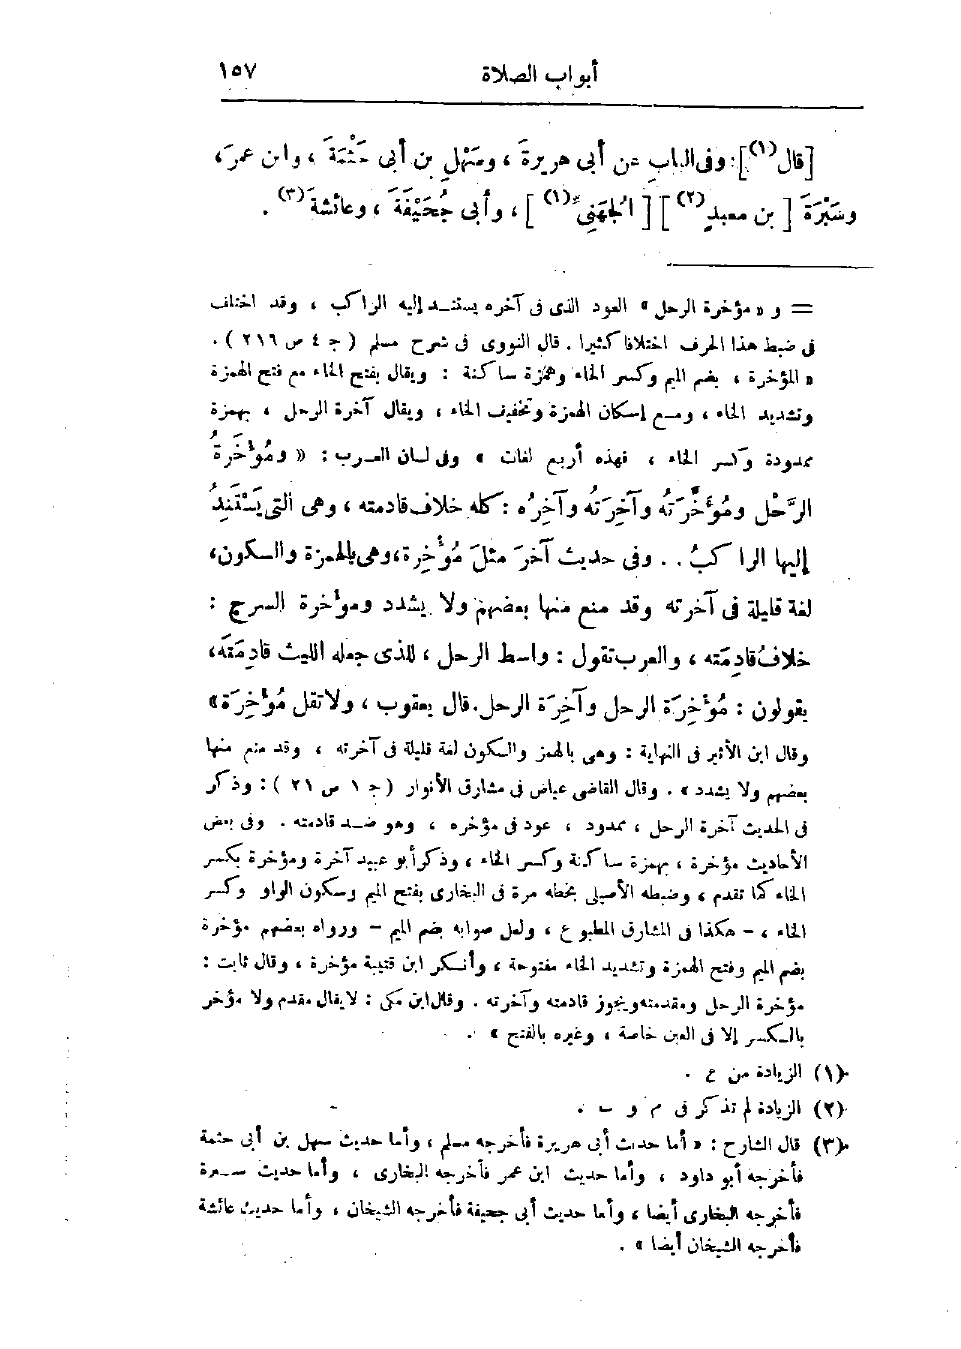 أبواب الصلاة ١٥٧
[قال(١)]: وفى الباب عن أبى هريرةَ ، وسَهْلِ بن أبى حَثْمَةَ ، وابن عمرَ،
وسَبْرَةَ [بن معبدٍ(٢)] [الْجُهَنِىِّ(١)] ، وأبى جُحَيْفَةَ ، وعائشةَ(٣) .
= و « مؤخرة الرحل » العود الذى فى آخره يستند إليه الراكب ، وقد اختلف
فى ضبط هذا الحرف اختلافا كثيرا . قال النووى فى شرح مسلم ( ج ٤ ص ٢١٦ ) .
« المؤخرة ، بضم الميم وكسر الخاء وهمزة ساكنة : ويقال بفتح الخاء مع فتح الهمزة
وتشديد الخاء ، ومع إسكان الهمزة وتخفيف الخاء ، ويقال آخرة الرحل ، بهمزة
ممدودة وكسر الخاء ، فهذه أربع لغات » وفى لسان العرب : « ومُؤَخَرَةُ
الرَّحْل ومُؤَخَّرَتُه وآخِرَتُه وآخِرُه : كله خلاف قادمته ، وهى التى يَسْتَنِدُ
إليها الراكبُ . . وفى حديث آخرَ مثلَ مُؤْخِرة،وهى بالهمزة والسكون،
لغة قليلة فى آخرته وقد منع منها بعضهم ولا يشدد ومؤخرة السرج :
خلافُ قادِمَتِه ، والعرب تقول : واسط الرحل ، للذى جعله الليث قادِمَتَه،
يقولون : مُؤْخِرَة الرحل وآخِرَة الرحل.قال يعقوب ، ولا تقل مُؤْخِرَة»
وقال ابن الأثير فى النهاية : وهى بالهمز والسكون لغة قليلة فى آخرته ، وقد منع منها
بعضهم ولا يشدد » . وقال القاضى عياض فى مشارق الأنوار ( ج ١ ص ٢١ ) : وذكر
فى الحديث آخرة الرحل ، ممدود ، عود فى مؤخره ، وهو ضد قادمته . وفى بعض
الأحاديث مؤخرة ، بهمزة ساكنة وكسر الخاء ، وذكر أبو عبيد آخرة ومؤخرة بكسر
الخاء كما تقدم ، وضبطه الأصيلى بخطه مرة فى البخارى بفتح الميم وسكون الواو وكسر
الخاء ، - هكذا فى المشارق المطبوع ، ولعل صوابه بضم الميم - ورواه بعضهم مؤخرة
بضم الميم وفتح الهمزة وتشديد الخاء مفتوحة ، وأنكر ابن قتيبة مؤخرة ، وقال ثابت :
مؤخرة الرحل ومقدمته ويجوز قادمته وآخرته . وقال ابن مكى : لا يقال مقدم ولا مؤخر
بالكسر إلا فى العين خاصة ، وغيره بالفتح » .
(١) الزيادة من ع .
(٢) الزيادة لم تذكر فى م و ب .
(٣) قال الشارح : « أما حديث أبى هريرة فأخرجه مسلم ، وأما حديث سهل بن أبى حثمة
فأخرجه أبو داود ، وأما حديث ابن عمر فأخرجه البخارى ، وأما حديث سبرة
فأخرجه البخارى أيضا ، وأما حديث أبى جحيفة فأخرجه الشيخان ، وأما حديث عائشة
فأخرجه الشيخان أيضا » .